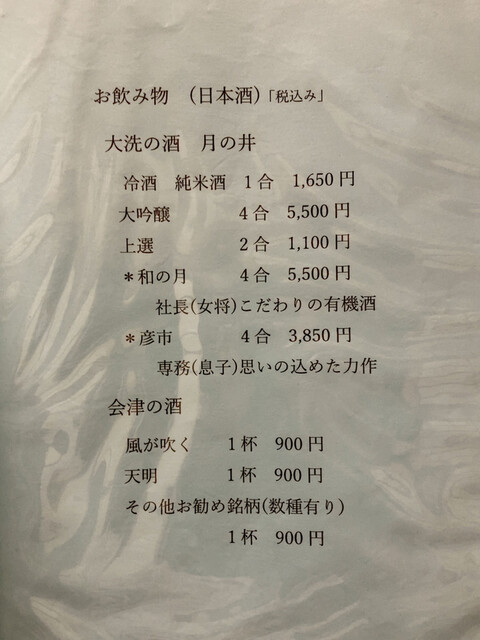 お飲み物　（日本酒）「税込み」
大洗の酒　月の井
冷酒　純米酒　1合　1,650円
大吟醸　4合　5,500円
上選　2合　1,100円
＊和の月　4合　5,500円
社長(女将)こだわりの有機酒
＊彦市　4合　3,850円
専務(息子)思いの込めた力作
会津の酒
風が吹く　1杯　900円
天明　1杯　900円
その他お勧め銘柄(数種有り)
1杯　900円